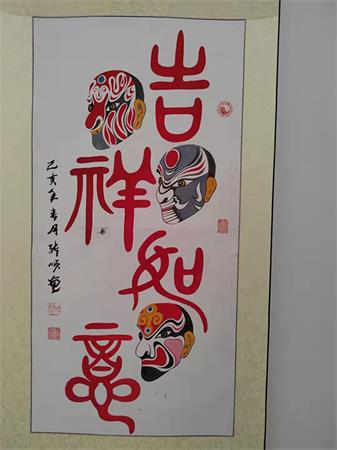 吉祥如意
己亥年春月